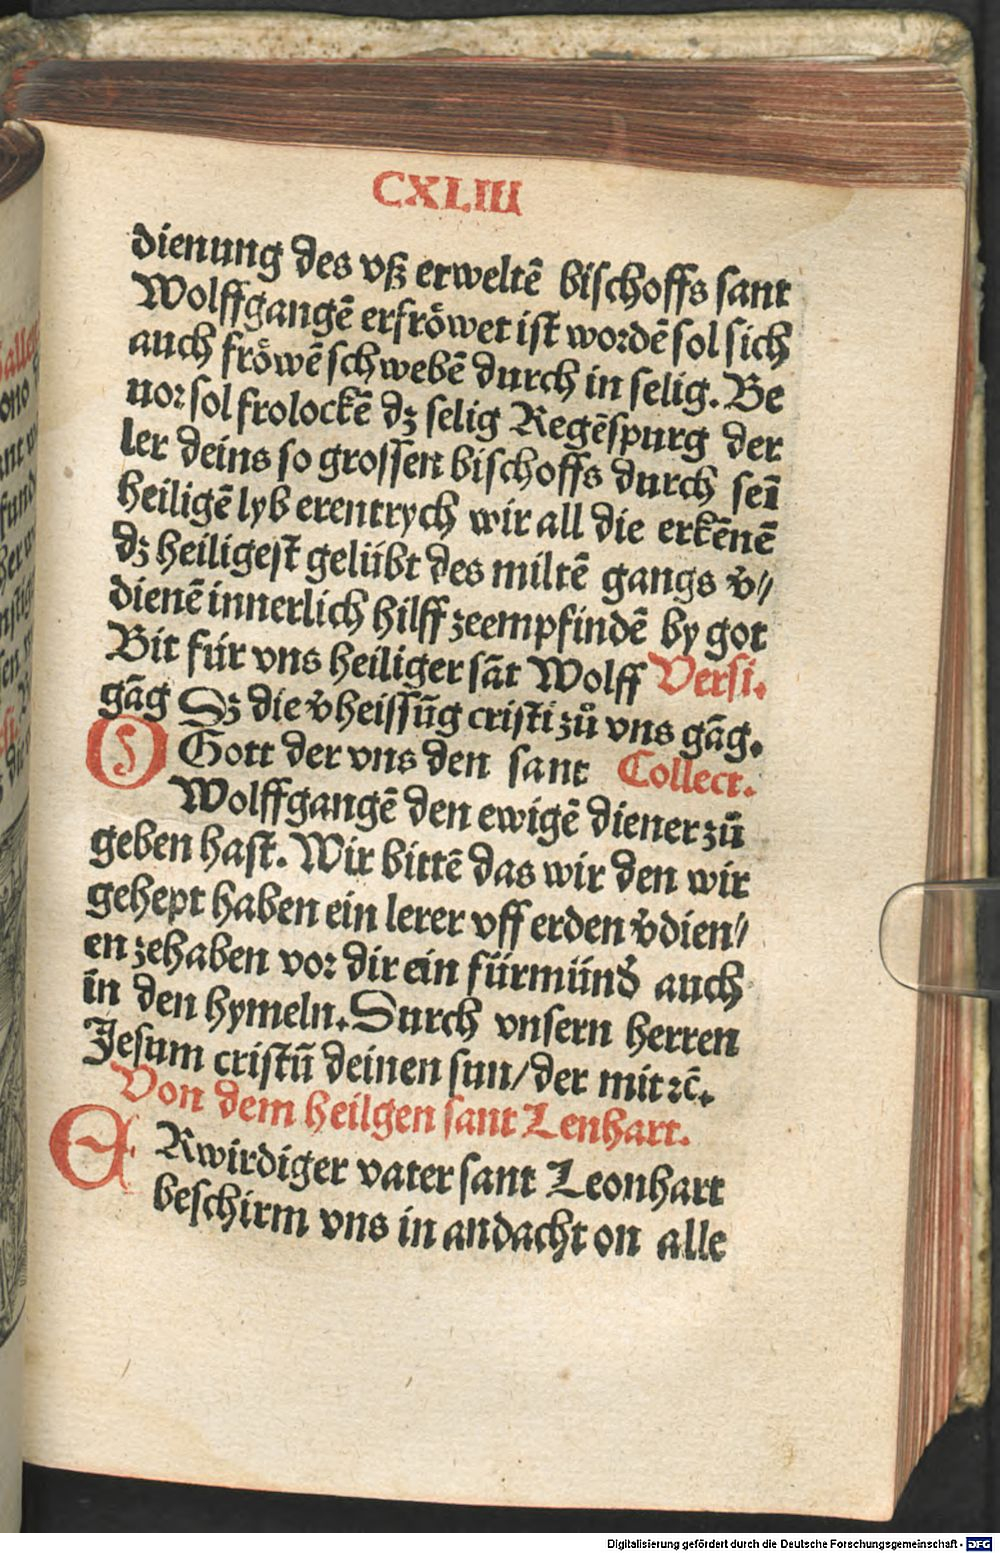 CXLIII
dienung des vß erweltē bischoffs sant
Wolffgangē erfröwet ist wordē sol sich
auch fröwē schwebē durch in selig. Be
uor sol frolockē dz selig Regēspurg der
ler deins so grossen bischoffs durch seī
heiligē lyb erentrych wir all die erkēnē
dz heiligest gelübt des miltē gangs v̄⸗
dienē innerlich hilff zeempfindē by got
Bit für vns heiliger sāt Wolff Versi.
gāg Dz die v̄heissūg cristi zů vns gāg.
O Gott der vns den sant Collect.
Wolffgangē den ewigē diener zů
geben hast. Wir bittē das wir den wir
gehept haben ein lerer vff erden v̄dien⸗
en zehaben vor dir ein fürmünd̄ auch
in den hymeln. Durch vnsern herren
Jesum cristū deinen sun/ der mit ꝛc̄.
Von dem heilgen sant Lenhart.
ERwirdiger vater sant Leonhart
beschirm vns in andacht on alle
Digitalisierung gefördert durch die Deutsche Forschungsgemeinschaft - DFG